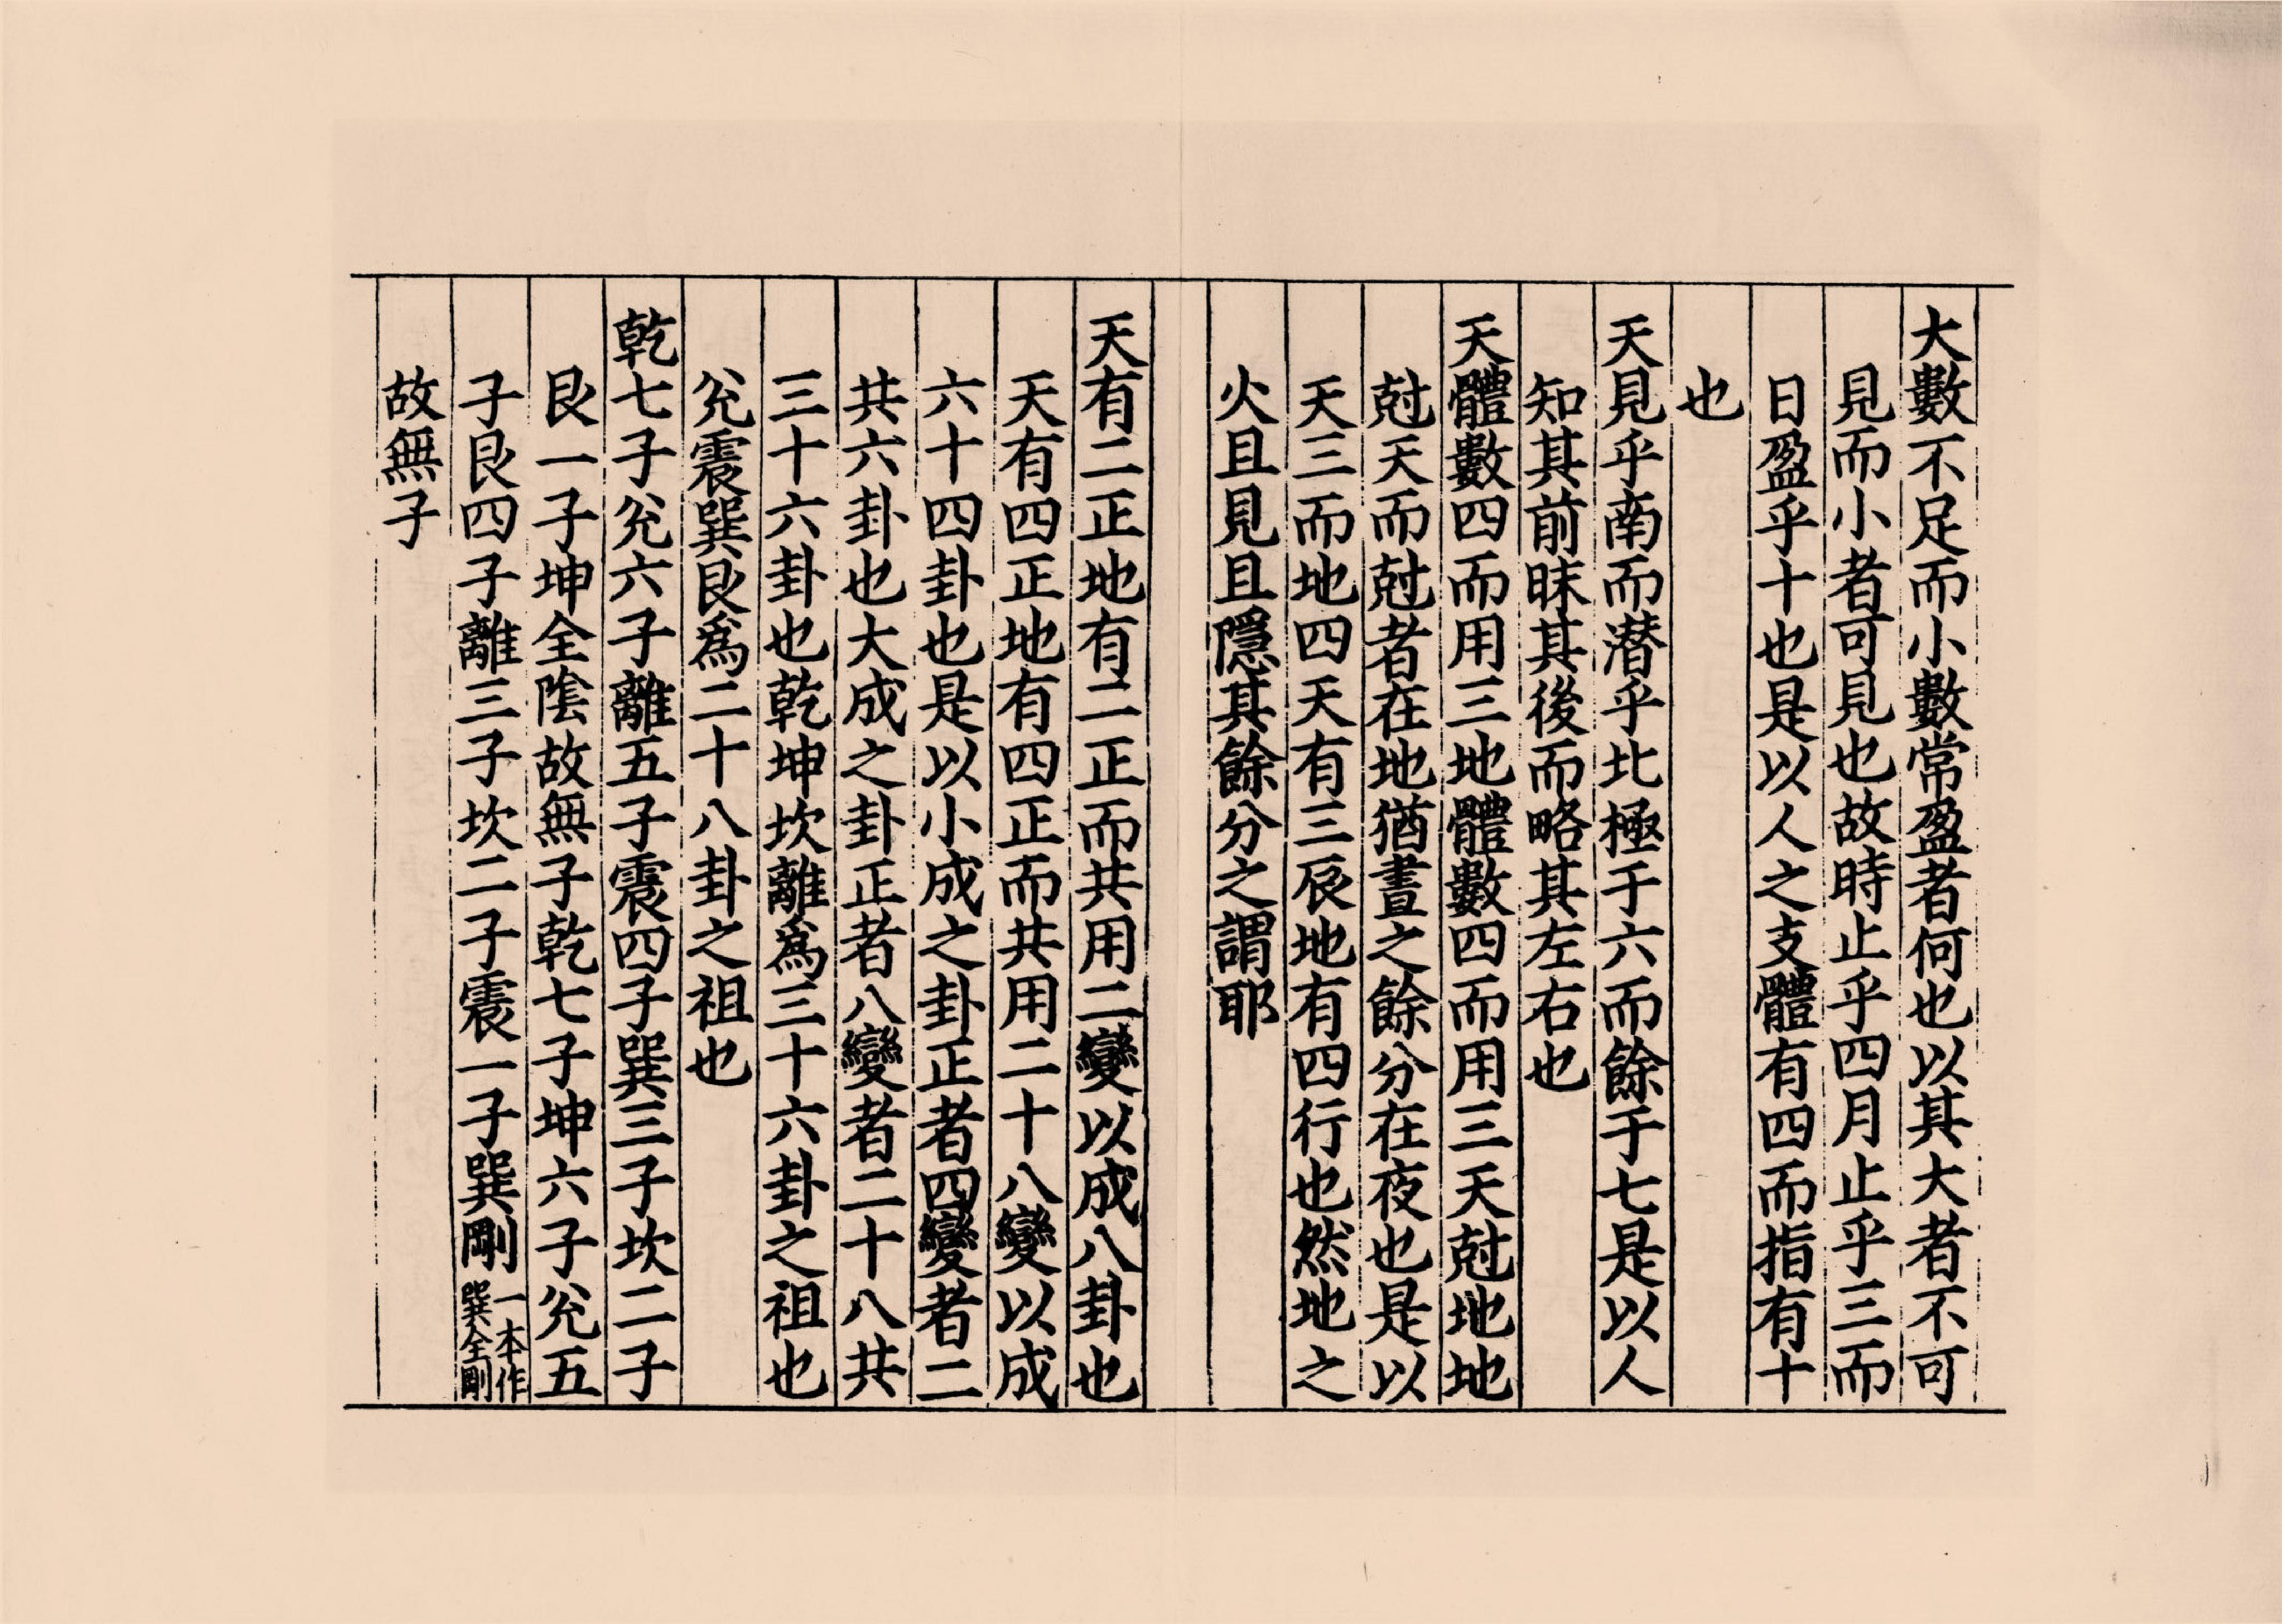 大數不足而小數常盈者何也以其大者不可
見而小者可見也故時止乎四月止乎三而
日盈乎十也是以人之支體有四而指有十
也
天見乎南而潛乎北極于六而餘于七是以人
知其前昧其後而略其左右也
天體數四而用三地體數四而用三天尅地地
尅天而尅者在地猶晝之餘分在夜也是以
天三而地四天有三辰地有四行也然地之
火且見且隱其餘分之謂耶
天有二正地有二正而共用二變以成八卦也
天有四正地有四正而共用二十八變以成
六十四卦也是以小成之卦正者四變者二
共六卦也大成之卦正者八變者二十八共
三十六卦也乾坤坎離爲三十六卦之祖也
兊震巽艮爲二十八卦之祖也
乾七子兊六子離五子震四子巽三子坎二子
艮一子坤全陰故無子乾七子坤六子兊五
子艮四子離三子坎二子震一子巽剛
一本作
巽全剛
故無子